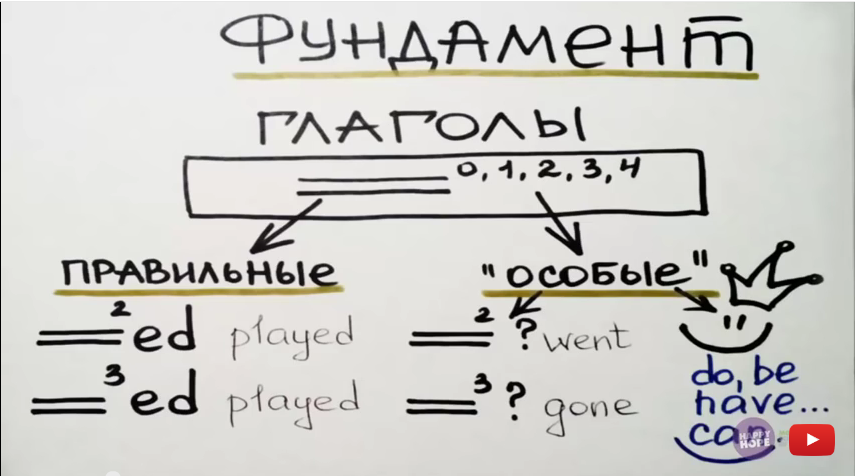 ФУНДАМЕНТ
ГЛАГОЛЫ
0, 1, 2, 3, 4
ПРАВИЛЬНЫЕ
"ОСОБЫЕ"
2 ed played
2 ? went
3 ed played
3 ? gone
do, be
have...
can
HAPPY
HOPE